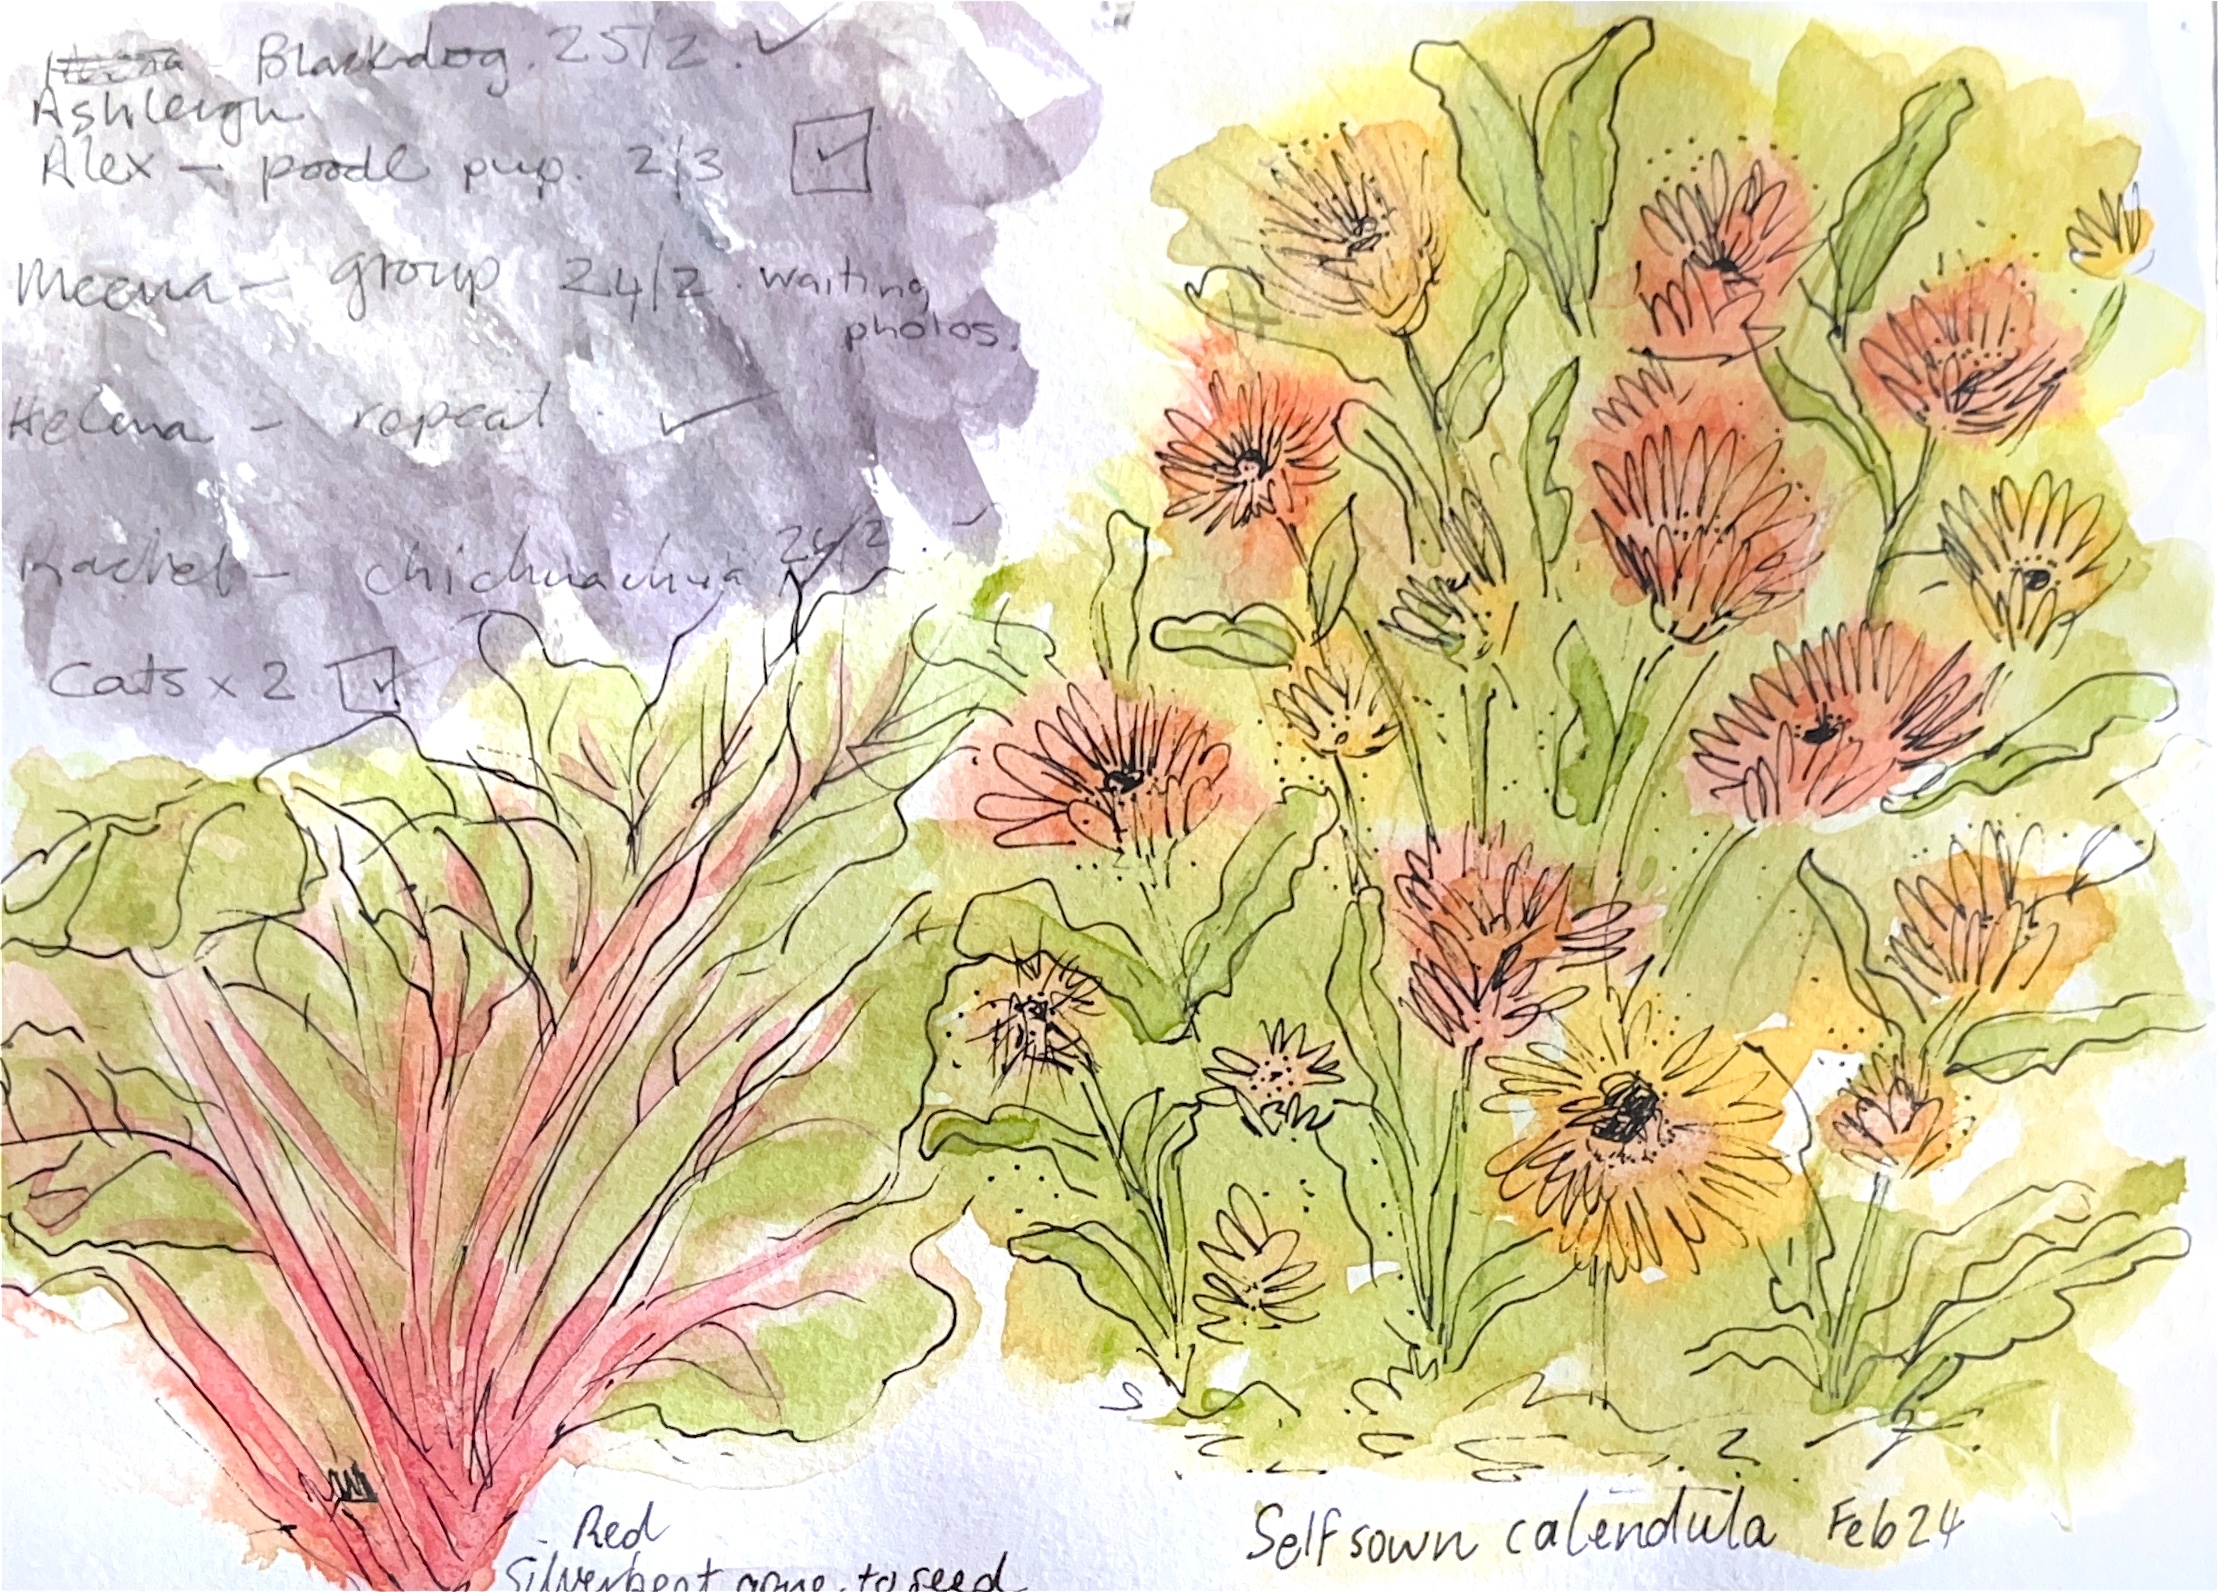 Blackdog. 25/2.
Ashleigh
Alex – poodle pup. 2/3
Meena – group 24/2. waiting
photos.
Helena – repeat
Rachel – chichuachua 26/2.
Cats x 2
Red
Silverbeet gone to seed
Self sown calendula Feb 24